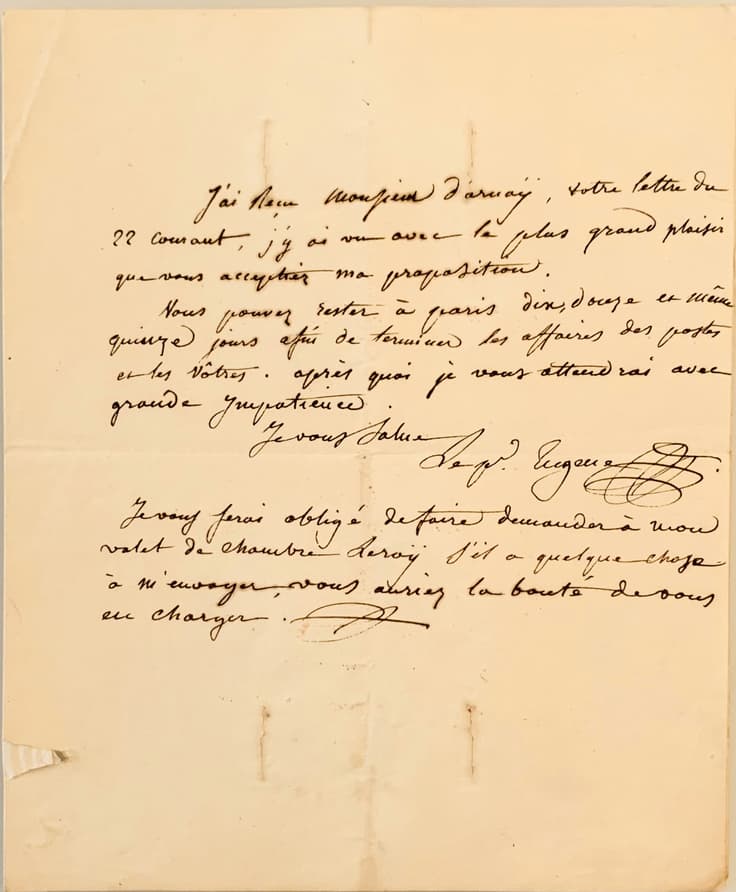 J'ai Reçu Monsieur d'arnaÿ, votre lettre du
22 courant, j'y ai vu avec le plus grand plaisir
que vous acceptiez ma proposition.
Vous pouvez rester à paris dix, douze et même
quinze jours afin de terminer les affaires des postes
et les Vôtres. après quoi je vous attendrai avec
grande Impatience.
Je vous Salue
Le p.ce Eugene
Je vous serai obligé de faire demander à mon
valet de chambre Leroÿ s'il a quelque chose
à m'envoyer, vous auriez la bonté de vous
en charger.